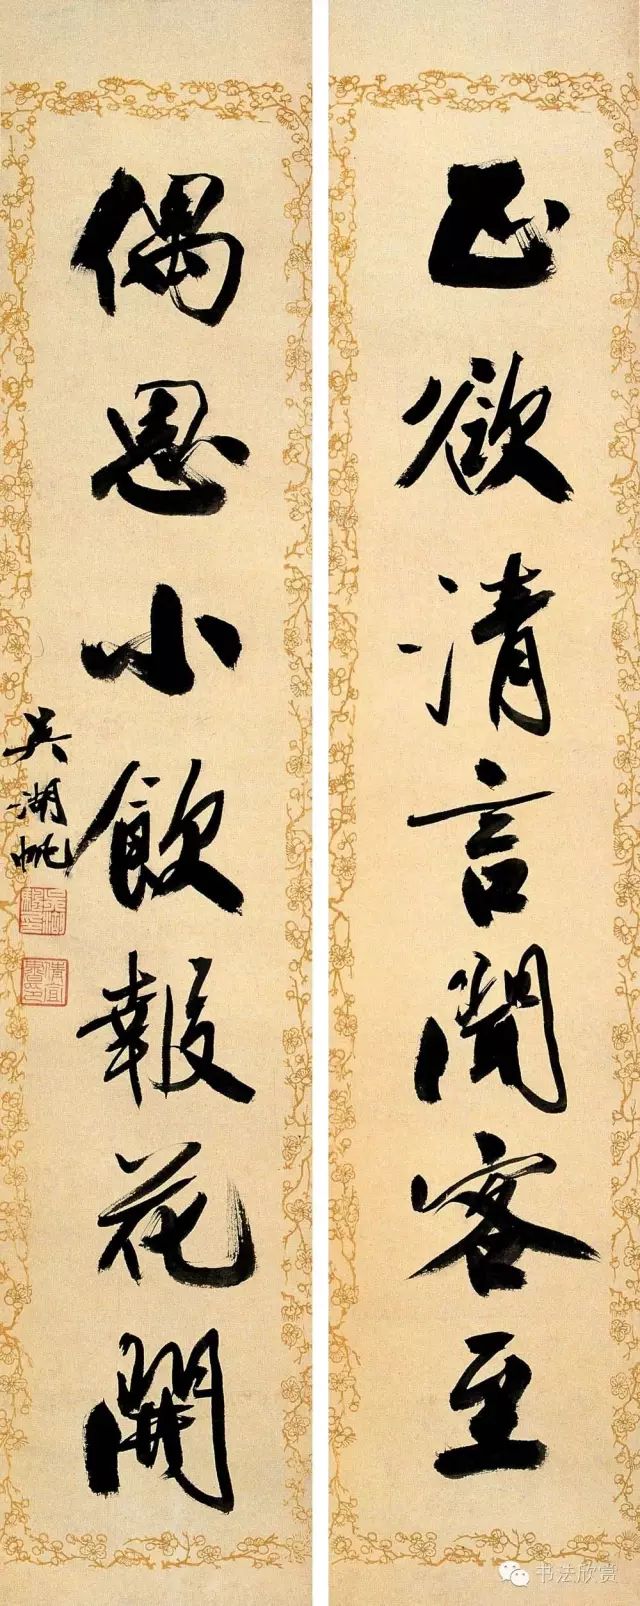 正欲清言聞客至
偶思小飲報花開
吳湖帆
书法欣赏